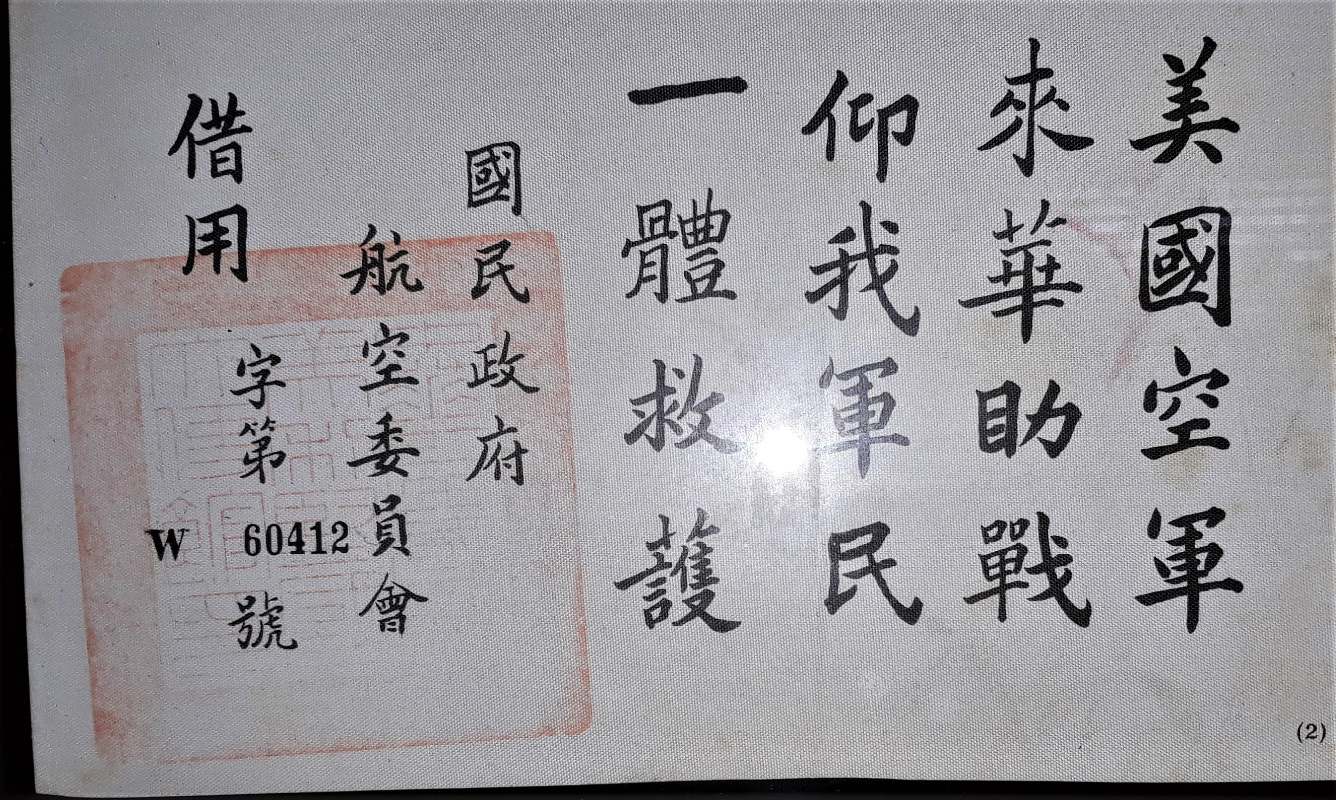 美國空軍
來華助戰
仰我軍民
一體救護
國民政府
航空委員會
借用
字第
W 60412
號
(2)